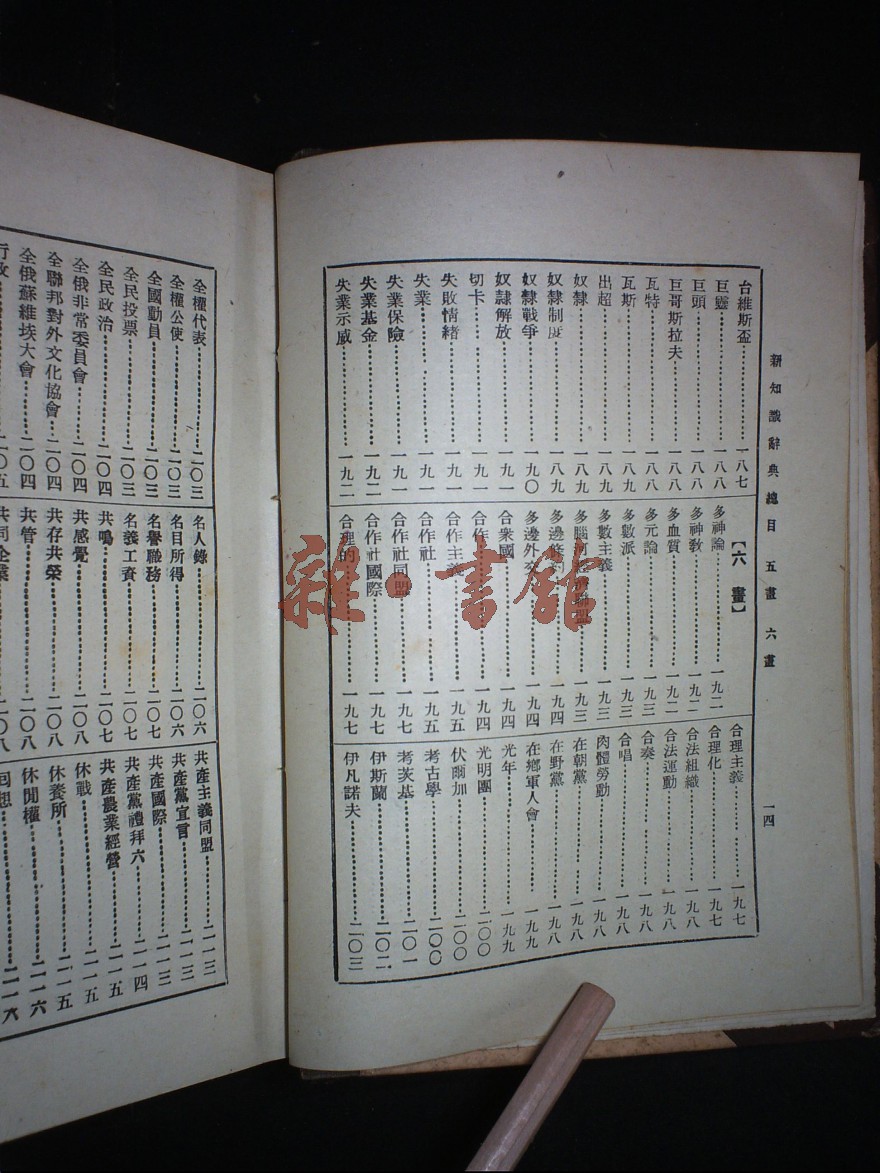 新知識辭典總目 五畫 六畫
一四
台維斯盃 一八七
巨靈 一八八
巨頭 一八八
巨哥斯拉夫 一八八
瓦特 一八八
瓦斯 一八九
出超 一八九
奴隸 一八九
奴隸制度 一八九
奴隸戰爭 一九〇
奴隸解放 一九一
切卡 一九一
失敗情緒 一九一
失業 一九一
失業保險 一九一
失業基金 一九二
失業示威 一九二
【六畫】
多神論 一九二
多神教 一九二
多血質 一九二
多元論 一九三
多數派 一九三
多數主義 一九三
多腦河經濟聯盟 一九三
多邊條約 一九四
多邊外交 一九四
合衆國 一九四
合作 一九四
合作主義 一九五
合作社 一九五
合作社同盟 一九七
合作社國際 一九七
合理的 一九七
合理主義 一九七
合理化 一九七
合法組織 一九八
合法運動 一九八
合奏 一九八
合唱 一九八
肉體勞動 一九八
在朝黨 一九八
在野黨 一九八
在鄉軍人會 一九九
光年 一九九
光明團 二〇〇
伏爾加 二〇〇
考古學 二〇〇
考茨基 二〇一
伊斯蘭 二〇二
伊凡諾夫 二〇三
全權代表 二〇三
全權公使 二〇三
全國動員 二〇三
全民投票 二〇三
全民政治 二〇四
全俄非常委員會 二〇四
全聯邦對外文化協會 二〇四
全俄蘇維埃大會 二〇四
行政 二〇五
名人錄 二〇六
名目所得 二〇六
名譽職務 二〇七
名義工資 二〇七
共鳴 二〇七
共感覺 二〇八
共存共榮 二〇八
共管 二〇八
共同企業 二〇八
共產主義同盟 二一三
共產黨宣言 二一三
共產國際 二一三
共產黨禮拜六 二一四
共產農業經營 二一五
休戰 二一五
休養所 二一五
休閒權 二一六
回想 二一六
雜·書館